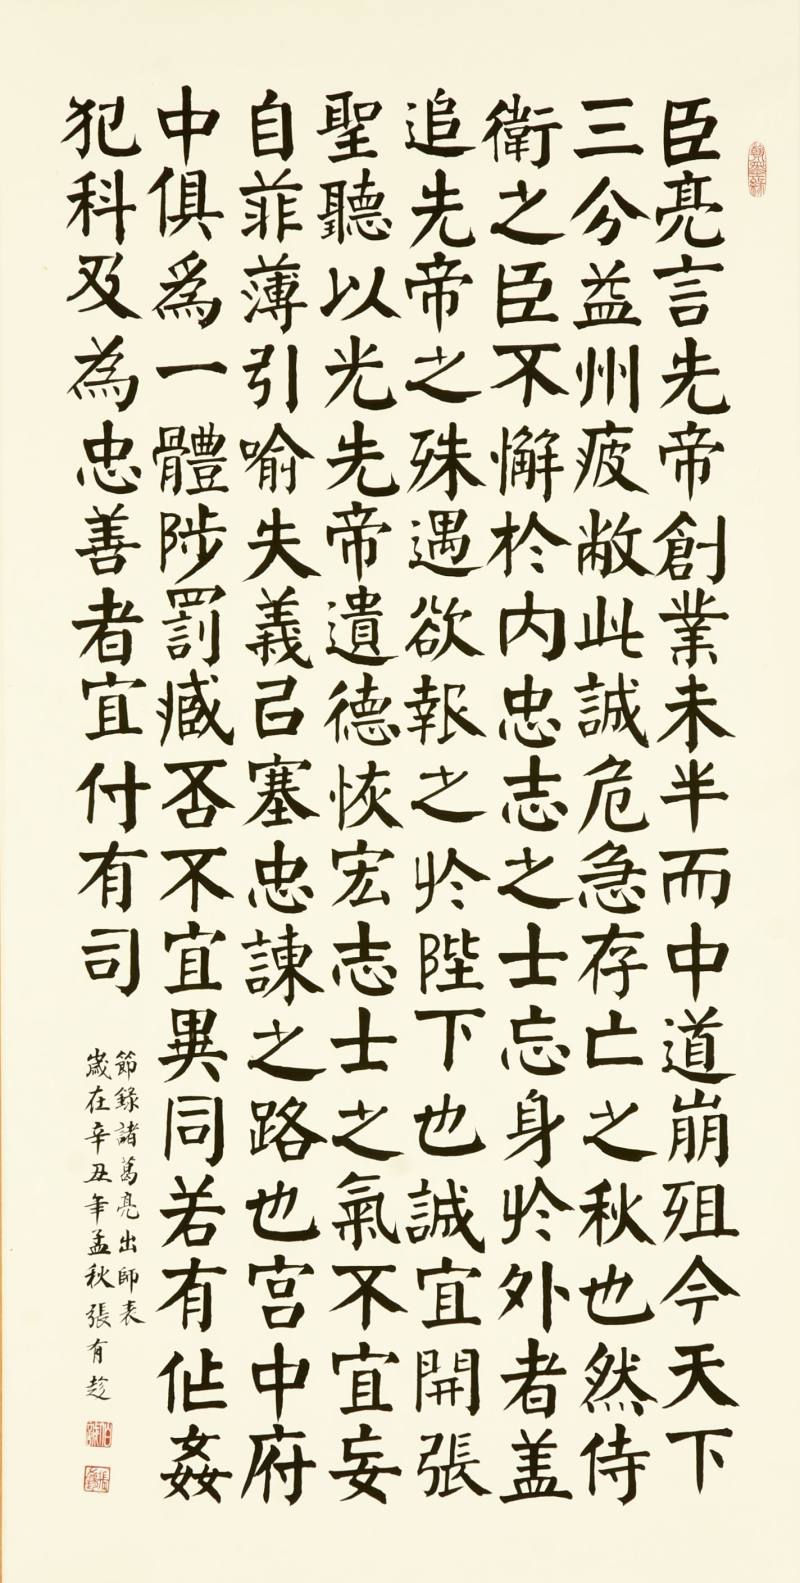 臣亮言先帝創業未半而中道崩殂今天下
三分益州疲敝此誠危急存亡之秋也然侍
衛之臣不懈於内忠志之士忘身於外者盖
追先帝之殊遇欲報之於陛下也誠宜開張
聖聽以光先帝遺德恢宏志士之氣不宜妄
自菲薄引喻失義㠯塞忠諫之路也宮中府
中俱爲一體陟罰臧否不宜異同若有作姦
犯科及為忠善者宜付有司
節錄諸葛亮出師表
歲在辛丑年孟秋張有